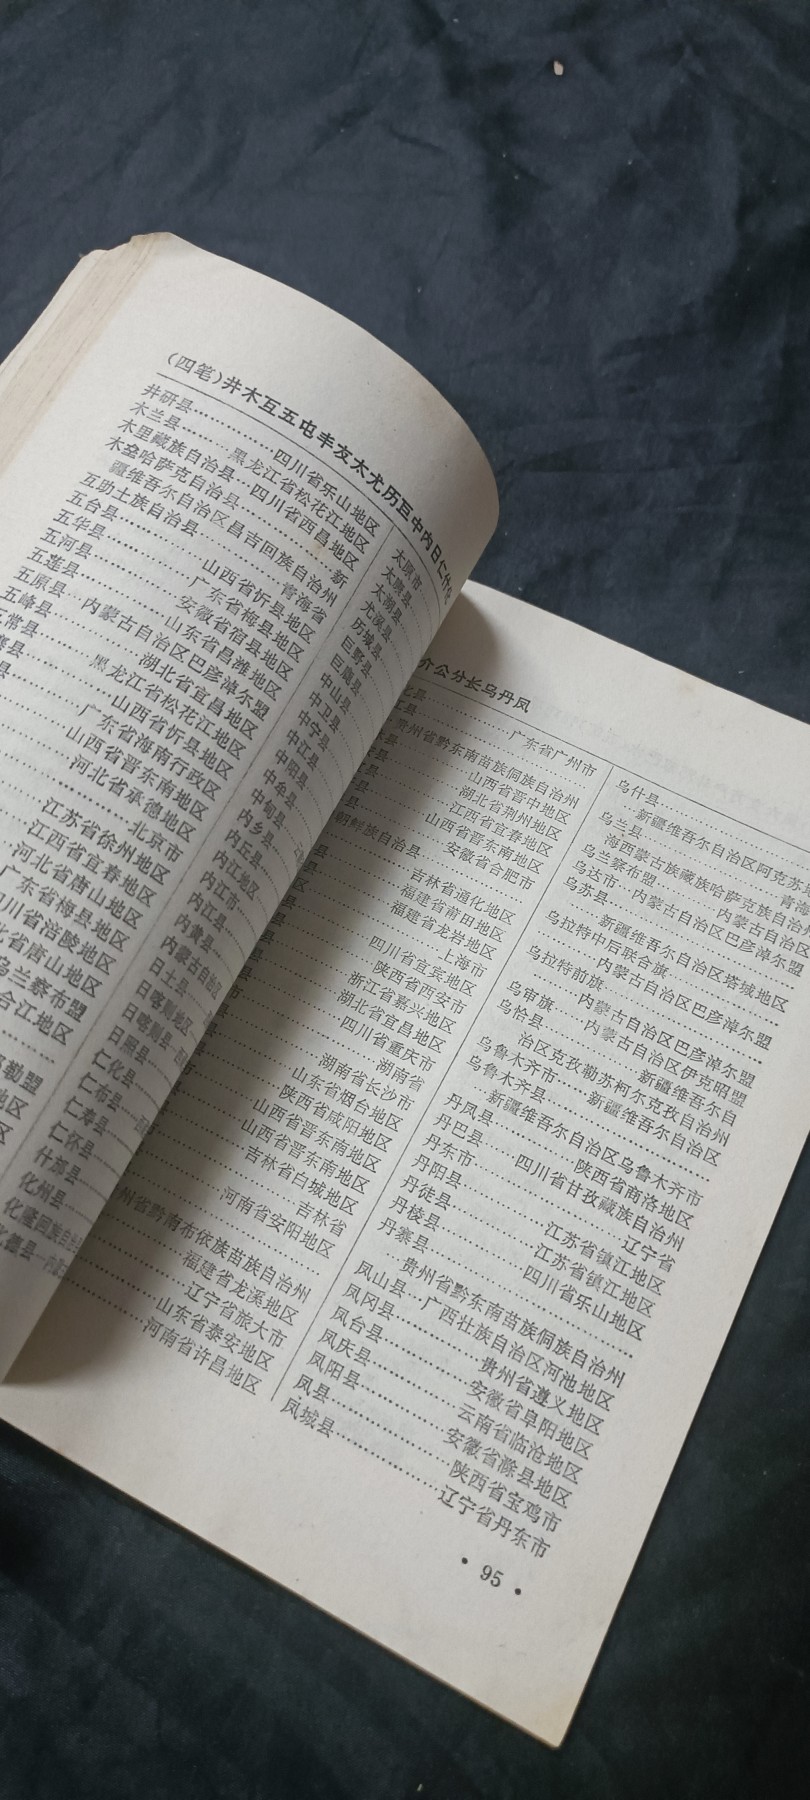 (四笔)井木互五屯丰友太尤历巨中内日仁什化
井研县…………四川省乐山地区
木兰县………黑龙江省松花江地区
木里藏族自治县…四川省西昌地区
木垒哈萨克自治县………新
疆维吾尔自治区昌吉回族自治州
互助土族自治县………青海省
五台县………山西省忻县地区
五华县………广东省梅县地区
五河县………安徽省宿县地区
五莲县………山东省昌潍地区
五原县…内蒙古自治区巴彦淖尔盟
五峰县………湖北省宜昌地区
五常县………黑龙江省松花江地区
山西省忻县地区
广东省海南行政区
山西省晋东南地区
河北省承德地区
北京市
江苏省徐州地区
江西省宜春地区
河北省唐山地区
广东省梅县地区
四川省涪陵地区
省唐山地区
乌兰察布盟
合江地区
勒盟
地区
区
太原市
太康县
太湖县
尤溪县
历城县
巨野县
巨鹿县
中山县
中卫县
中宁县
中江县
中阳县
中牟县
中甸县
内乡县
内丘县
内江地区
内江市
内江县
内黄县
内蒙古自治区
日土县
日喀则地区
日喀则县
日照县
仁化县
仁布县
仁寿县
仁怀县
什邡县
化州县
化隆回族自治县
化德县
介公分长乌丹凤
广东省广州市
贵州省黔东南苗族侗族自治州
山西省晋中地区
湖北省荆州地区
江西省宜春地区
山西省晋东南地区
安徽省合肥市
朝鲜族自治县
吉林省通化地区
福建省莆田地区
福建省龙岩地区
上海市
四川省宜宾地区
陕西省西安市
浙江省嘉兴地区
湖北省宜昌地区
四川省重庆市
湖南省
湖南省长沙市
山东省烟台地区
陕西省咸阳地区
山西省晋东南地区
山西省晋东南地区
吉林省白城地区
吉林省
河南省安阳地区
州省黔南布依族苗族自治州
福建省龙溪地区
辽宁省旅大市
山东省泰安地区
河南省许昌地区
乌什县………
新疆维吾尔自治区阿克苏地
乌兰县………青海
海西蒙古族藏族哈萨克族自治州
乌兰察布盟………内蒙古自治区
乌达市…内蒙古自治区巴彦淖尔盟
乌苏县………
新疆维吾尔自治区塔城地区
乌拉特中后联合旗………
内蒙古自治区巴彦淖尔盟
乌拉特前旗………
内蒙古自治区巴彦淖尔盟
乌审旗……内蒙古自治区伊克昭盟
乌恰县………新疆维吾尔自
治区克孜勒苏柯尔克孜自治州
乌鲁木齐市……新疆维吾尔自治区
乌鲁木齐县………
新疆维吾尔自治区乌鲁木齐市
丹凤县………陕西省商洛地区
丹巴县……四川省甘孜藏族自治州
丹东市………辽宁省
丹阳县………江苏省镇江地区
丹徒县………江苏省镇江地区
丹棱县………四川省乐山地区
丹寨县………
贵州省黔东南苗族侗族自治州
凤山县…广西壮族自治区河池地区
凤冈县………贵州省遵义地区
凤台县………安徽省阜阳地区
凤庆县………云南省临沧地区
凤阳县………安徽省滁县地区
凤县………陕西省宝鸡市
凤城县………辽宁省丹东市
• 95 •